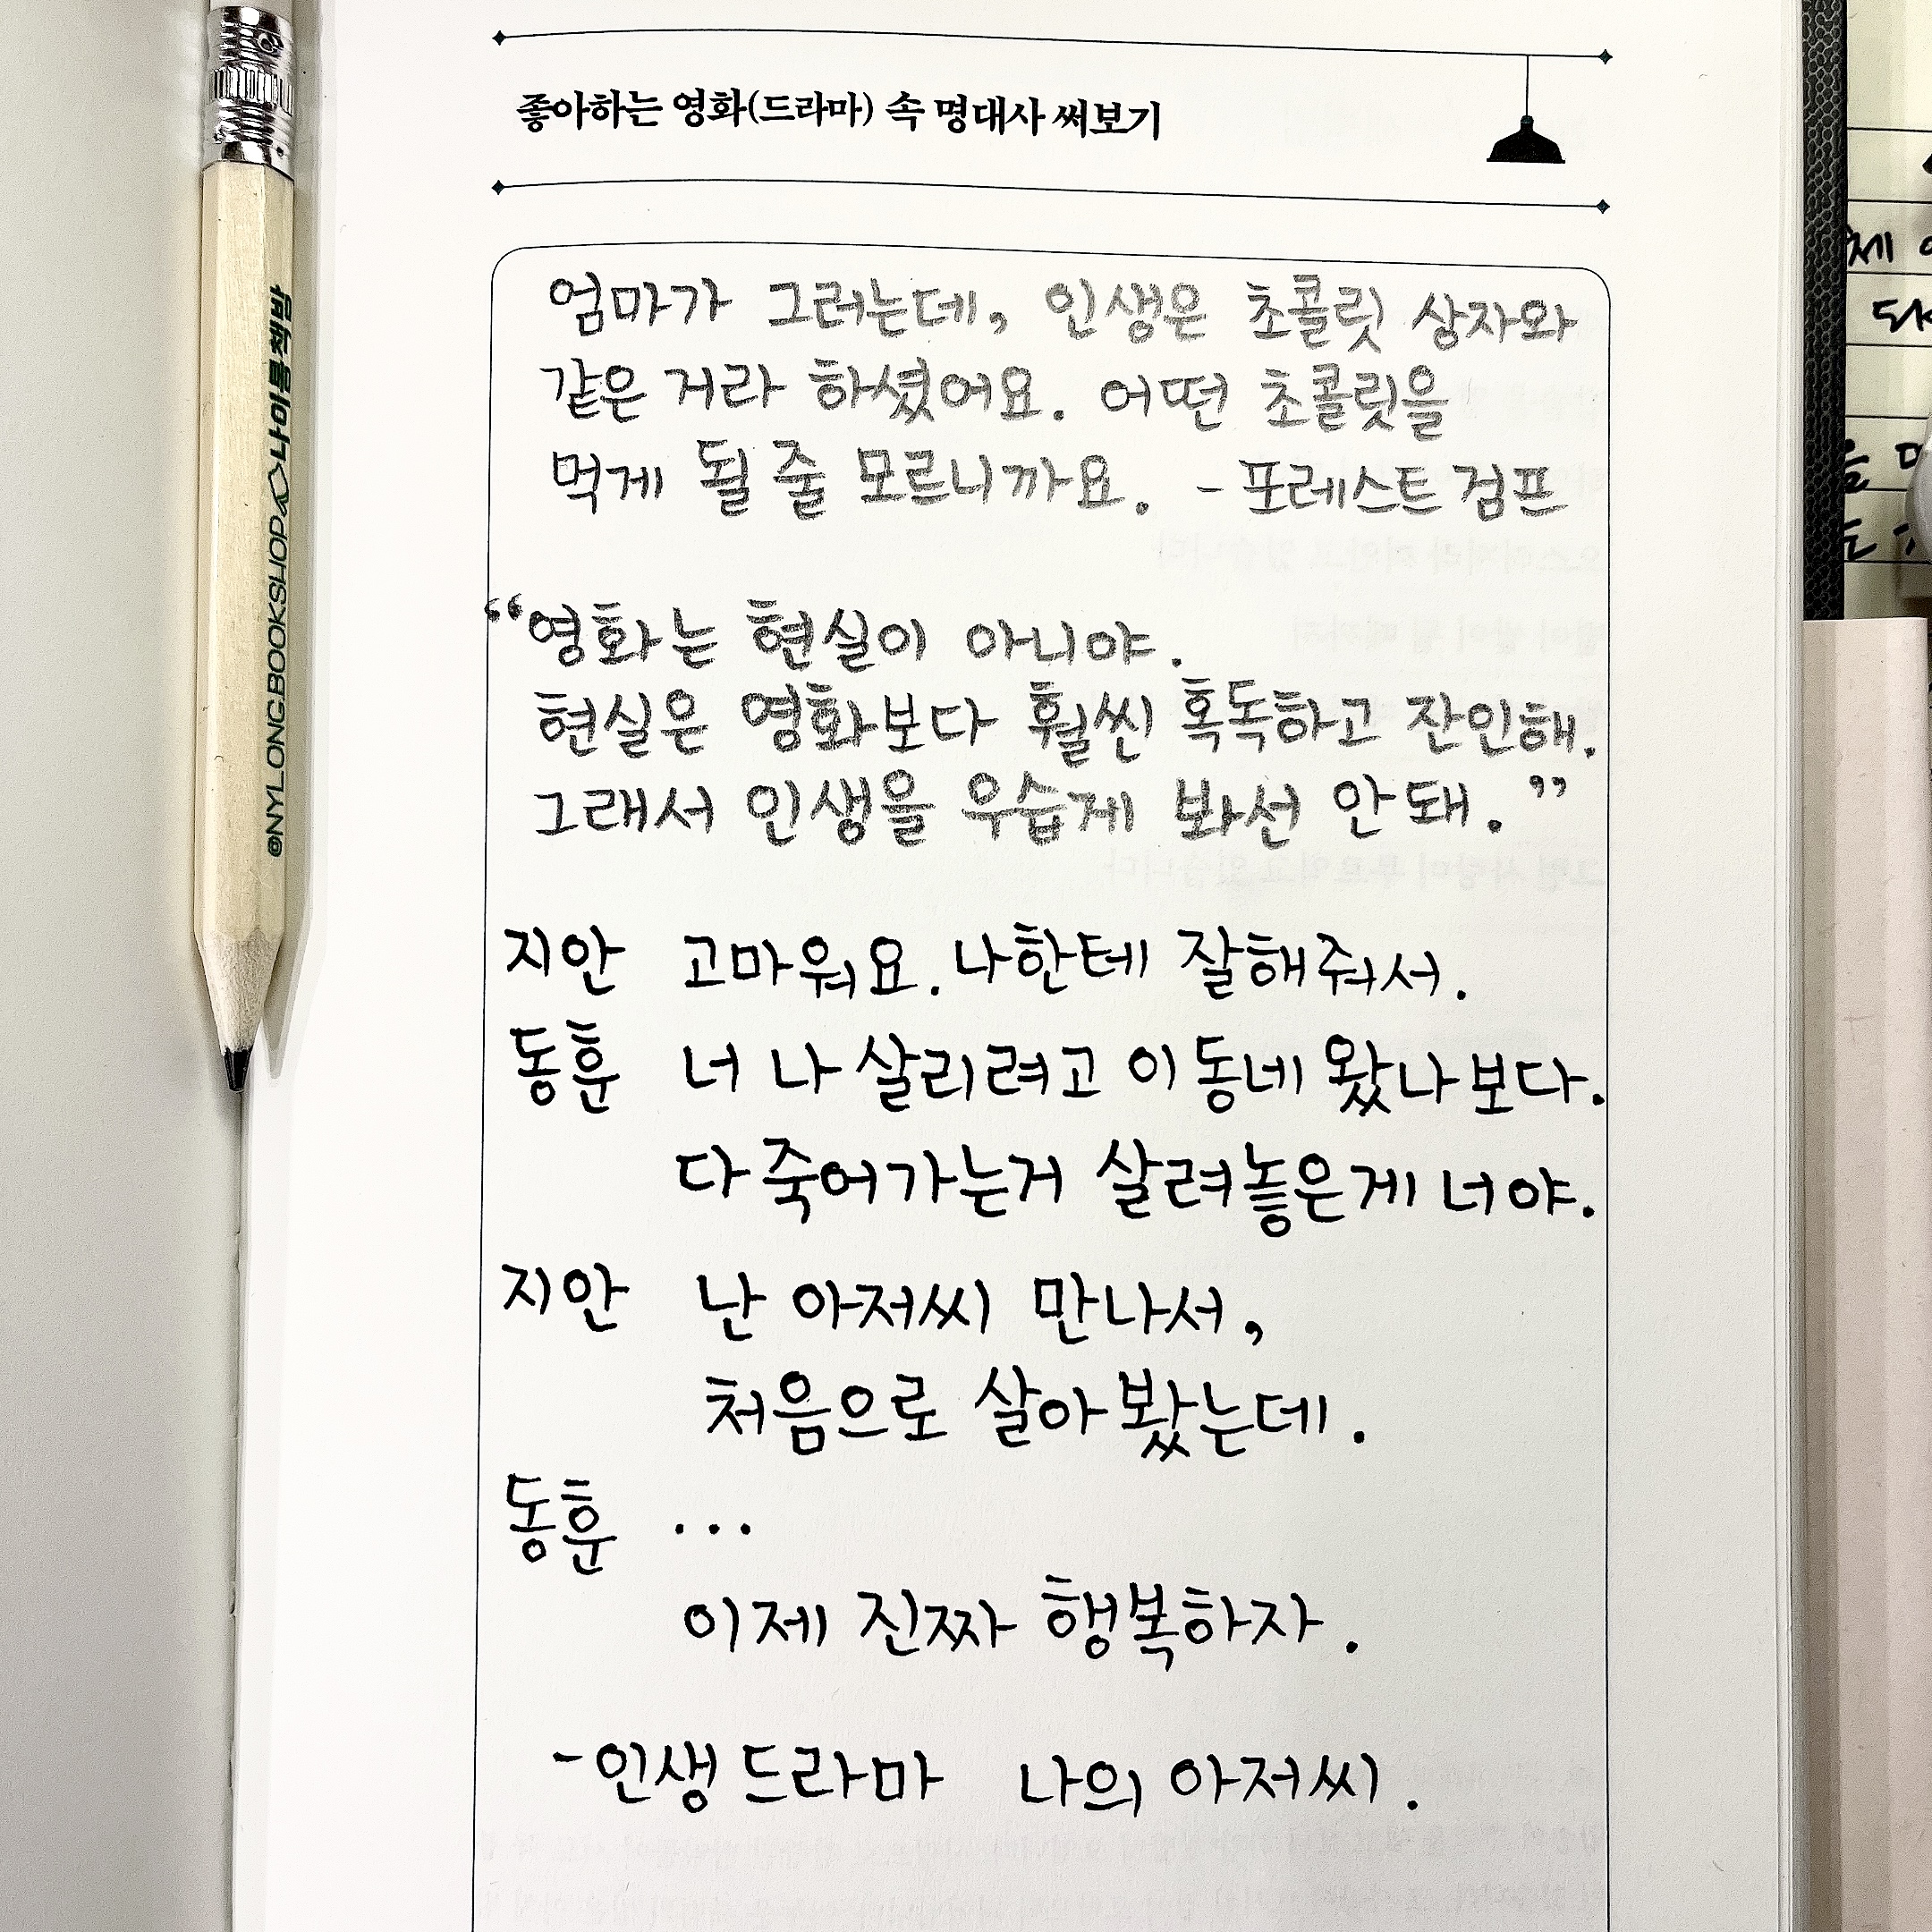 좋아하는 영화(드라마) 속 명대사 써보기
엄마가 그러는데, 인생은 초콜릿 상자와
같은 거라 하셨어요. 어떤 초콜릿을
먹게 될 줄 모르니까요. - 포레스트 검프
“영화는 현실이 아니야.
현실은 영화보다 훨씬 혹독하고 잔인해.
그래서 인생을 우습게 봐선 안돼.”
지안 고마워요. 나한테 잘해줘서.
동훈 너 나 살리려고 이 동네 왔나보다.
다 죽어가는거 살려놓은게 너야.
지안 난 아저씨 만나서,
처음으로 살아봤는데.
동훈 ...
이제 진짜 행복하자.
- 인생 드라마 나의 아저씨.
@NYLONGBOOKSHOP 나이롱책방